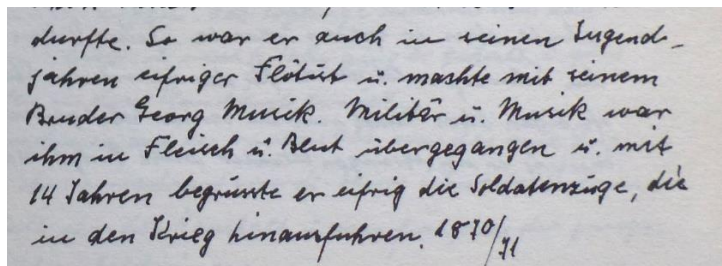 durfte. So war er auch in seinen Jugend-
jahren eifriger Flötist u. machte mit seinem
Bruder Georg Musik. Militär u. Musik war
ihm in Fleisch u. Blut übergegangen u. mit
14 Jahren begrüsste er eifrig die Soldatenzüge, die
in den Krieg hinausfuhren. 1870/71